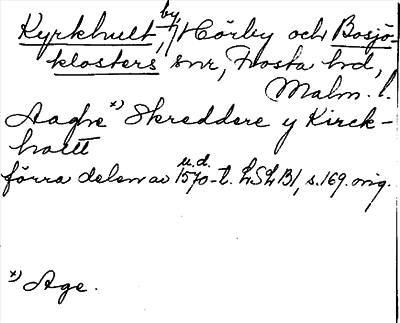 Kyrkhult, by i Hörby och Bosjö-
klosters snr, Frosta hd,
Malm. l.
Aaghe x) Skreddere y Kirck-
hollt
förra delen av u.d. 1570-t. LSLB1, s.169. orig.
x) Age.